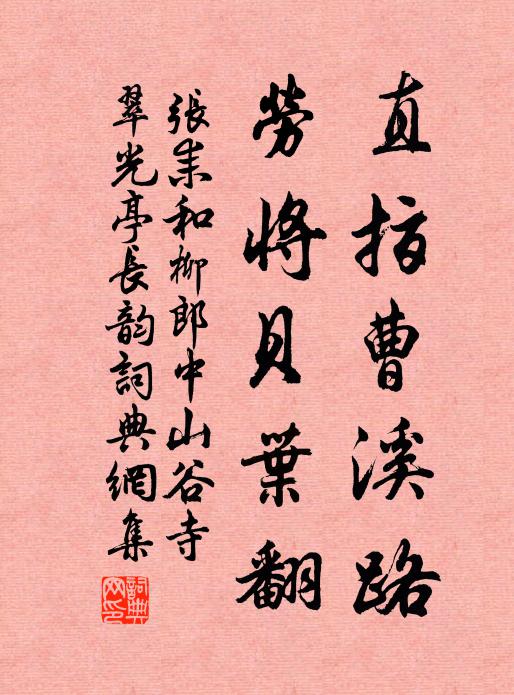 直指曹溪路
勞將貝葉翻
張耒和柳郎中山谷寺
翠光亭長韵詞典網集
詞典网印